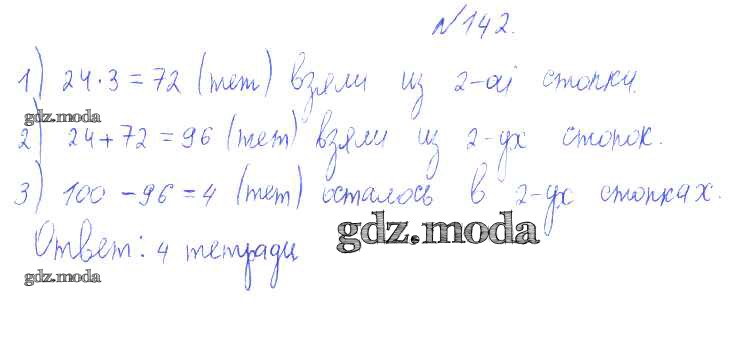 №142.
1) 24·3=72 (тет) взяли из 2-ой стопки.
gdz.moda
2) 24+72=96 (тет) взяли из 2-ух стопок.
3) 100-96=4 (тет) осталось в 2-ух стопках.
gdz.moda
Ответ: 4 тетради
gdz.moda